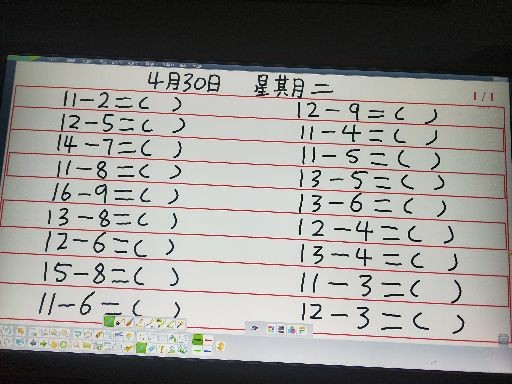 4月30日 星期月二
1/1
11-2=( )
12-5=( )
14-7=( )
11-8=( )
16-9=( )
13-8=( )
12-6=( )
15-8=( )
11-6=( )
12-9=( )
11-4=( )
11-5=( )
13-5=( )
13-6=( )
12-4=( )
13-4=( )
11-3=( )
12-3=( )